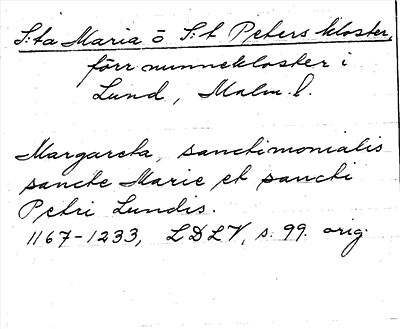 S:ta Maria o S:t Peters kloster,
förr nunnekloster i
Lund, Malm. l.
Margareta, sanctimonialis
sancte Marie et sancti
Petri Lundis.
1167-1233, LDLV, s. 99. orig.